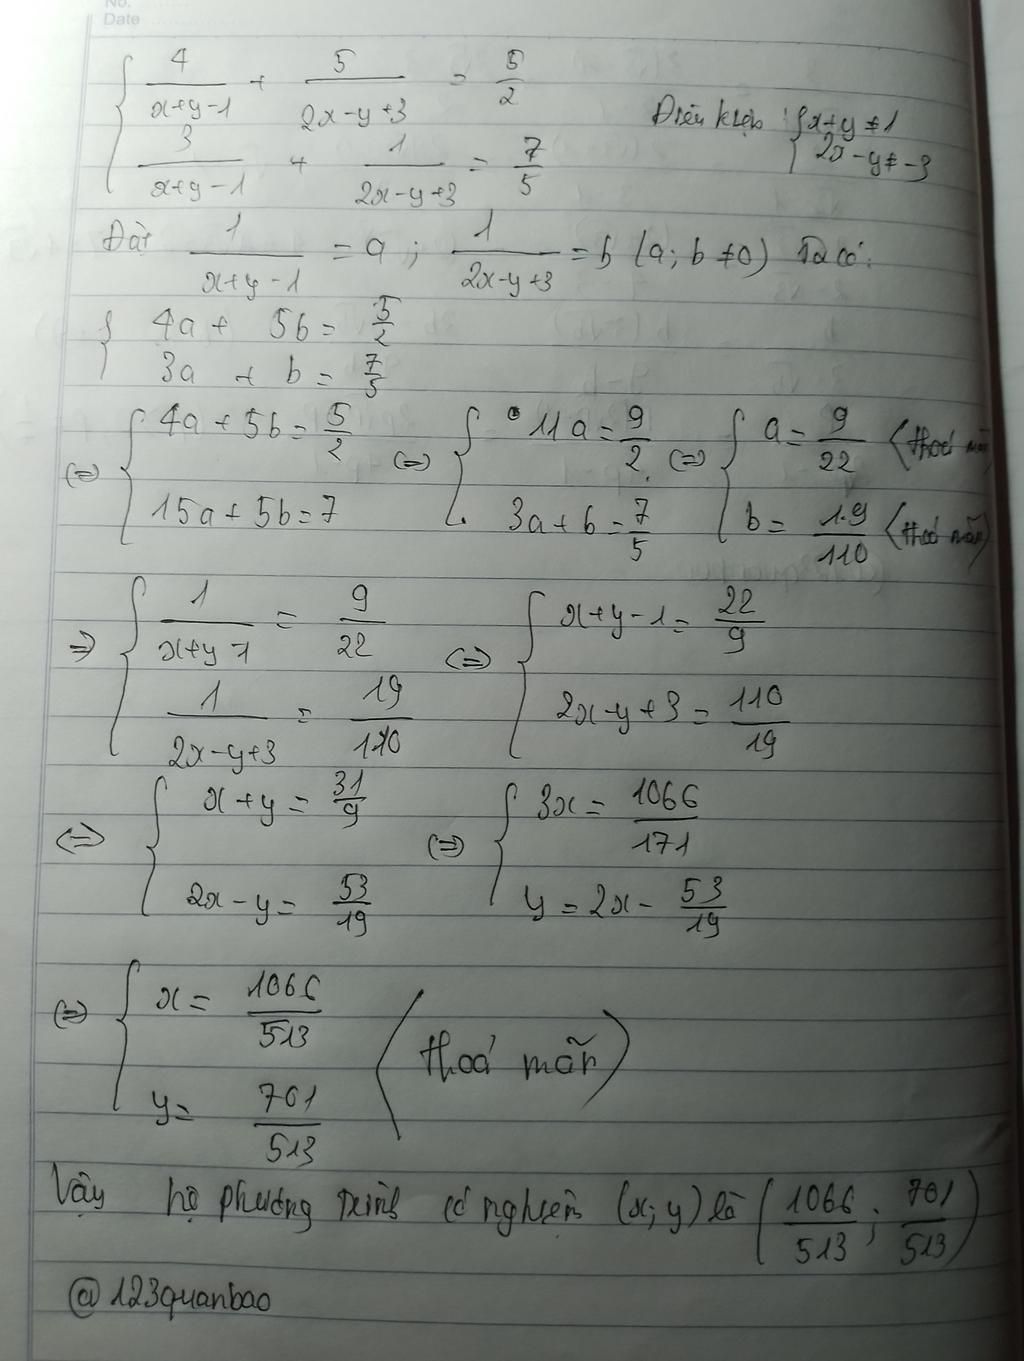 No.
Date
{ 4/(x+y-1) + 5/(2x-y+3) = 5/2
{ 3/(x+y-1) + 1/(2x-y+3) = 7/5
Điều kiện : { x+y ≠ 1
{ 2x-y ≠ -3
Đặt 1/(x+y-1) = a ; 1/(2x-y+3) = b (a; b ≠ 0) Ta có:
{ 4a + 5b = 5/2
{ 3a + b = 7/5
⇔ { 4a + 5b = 5/2 ⇔ { 11a = 9/2 ⇔ { a = 9/22 (thoả mãn)
{ 15a + 5b = 7 { 3a + b = 7/5 { b = 19/110 (thoả mãn)
⇒ { 1/(x+y-1) = 9/22 ⇔ { x+y-1 = 22/9
{ 1/(2x-y+3) = 19/110 { 2x-y+3 = 110/19
⇔ { x+y = 31/9 ⇔ { 3x = 1066/171
{ 2x-y = 53/19 { y = 2x - 53/19
⇔ { x = 1066/513
{ y = 701/513
(thoả mãn)
Vậy hệ phương trình có nghiệm (x; y) là (1066/513 ; 701/513)
@123quanbao